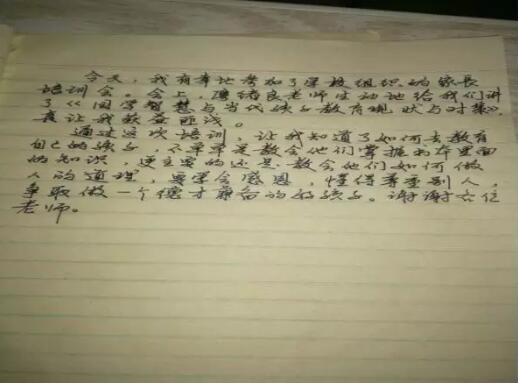 今天，我有幸地参加了学校组织的家长
培训会。会上，绪良老师生动地给我们讲
了《国学智慧与当代孩子教育现状与对策》，
真让我获益匪浅。
通过这次培训，让我知道了如何去教育
自己的孩子，不单单是教会他们掌握书本里面
的知识，更主要的还是教会他们如何做
人的道理，要学会感恩，懂得尊重别人，
争取做一个德才兼备的好孩子。谢谢六位
老师。